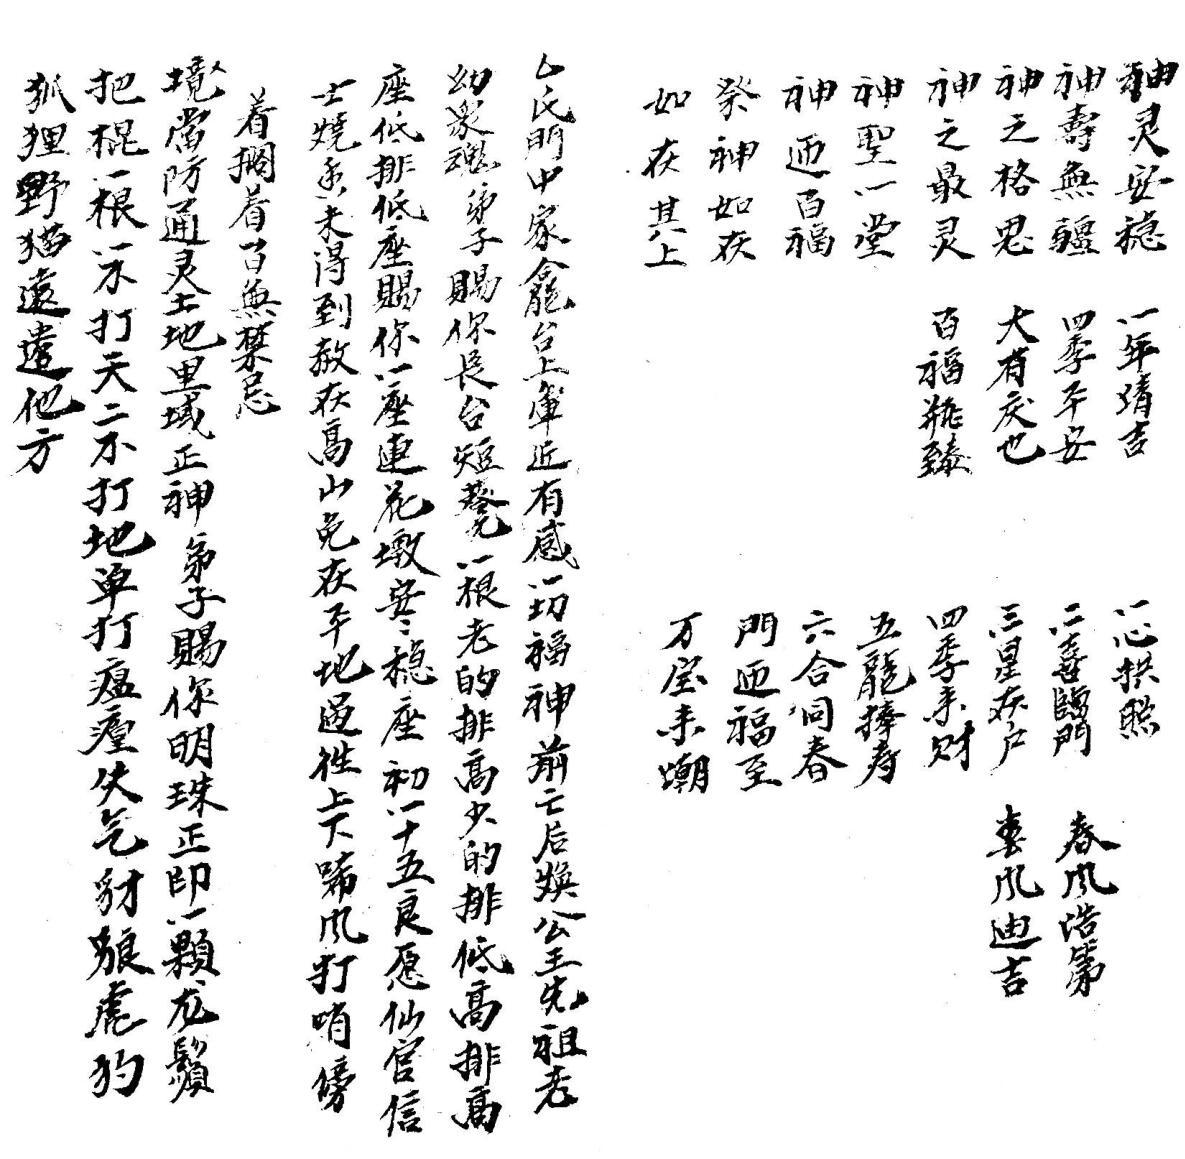 神灵安稳
神壽無疆
神之格思
神之最灵
神聖一堂
神迊百福
祭神如在
如在其上
一年清吉
四季平安
大有庆也
百福骿臻
一心拱照
二喜臨門
三星在户
四季来财
五龍捧寿
六合同春
門迊福至
万宝来潮
春风浩第
春风迪吉
氏門中家龕台上遠近有感一切福神前亡后焕公王先祖老
幼眾魂弟子賜你長台短凳一根老的排高少的排低高排高
座低排低座賜你一座連花墩安々稳座初一十五良愿仙官信
士燒香未得到赦在高山免在平地過往上下啼风打哨傍
着擱着百無禁忌
境當防通灵土地里域正神弟子賜你明珠正印一顆龙鬚
把棍一根一不打天二不打地单打瘟瘽伕气豺狼虎豹
狐狸野猫遠遠他方